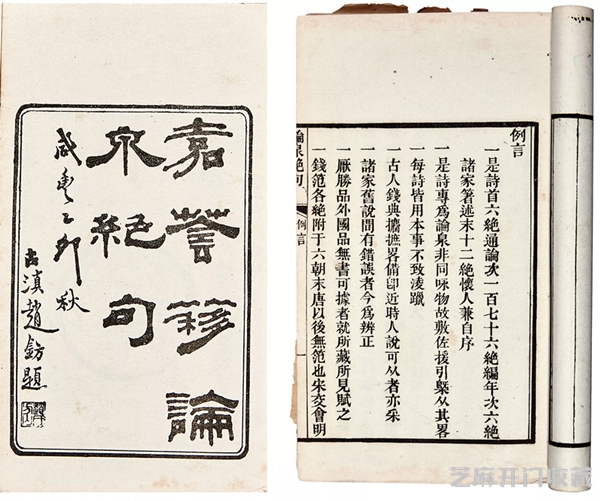 嘉蔭簃論
泉絕句
咸豐乙卯秋
古滇趙題
例言
一是詩首六絕通論次一百七十六絕編年次六絕
諸家箸述末十二絕懷人兼自序
一是詩專爲論泉非同咏物故敷佐援引槩从其畧
一每詩皆用本事不致淩躐
一古人錢典攟摭畧備卽近時人說可从者亦采
一諸家舊說間有錯誤者今爲辨正
一厭勝品外國品無書可據者就所藏所見賦之
一錢范各絕附于六朝末唐以後無范也宋交會明
論泉絕句
例言
一
芝麻开门收藏